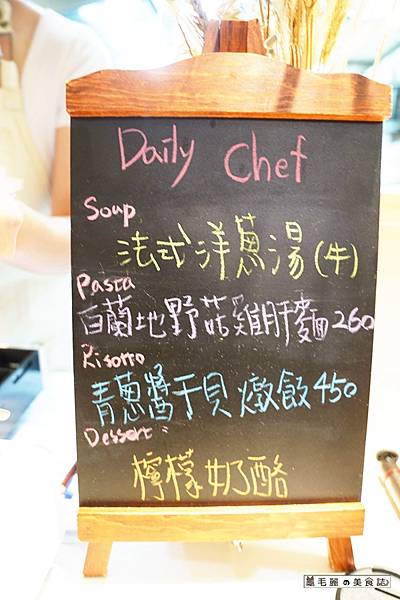 Daily Chef
Soup
法式洋蔥湯(牛)
Pasta
百蘭地野菇雞肝麵260
Risotto
青蔥醬干貝燉飯450
Dessert
檸檬奶酪
毛麗の美食誌